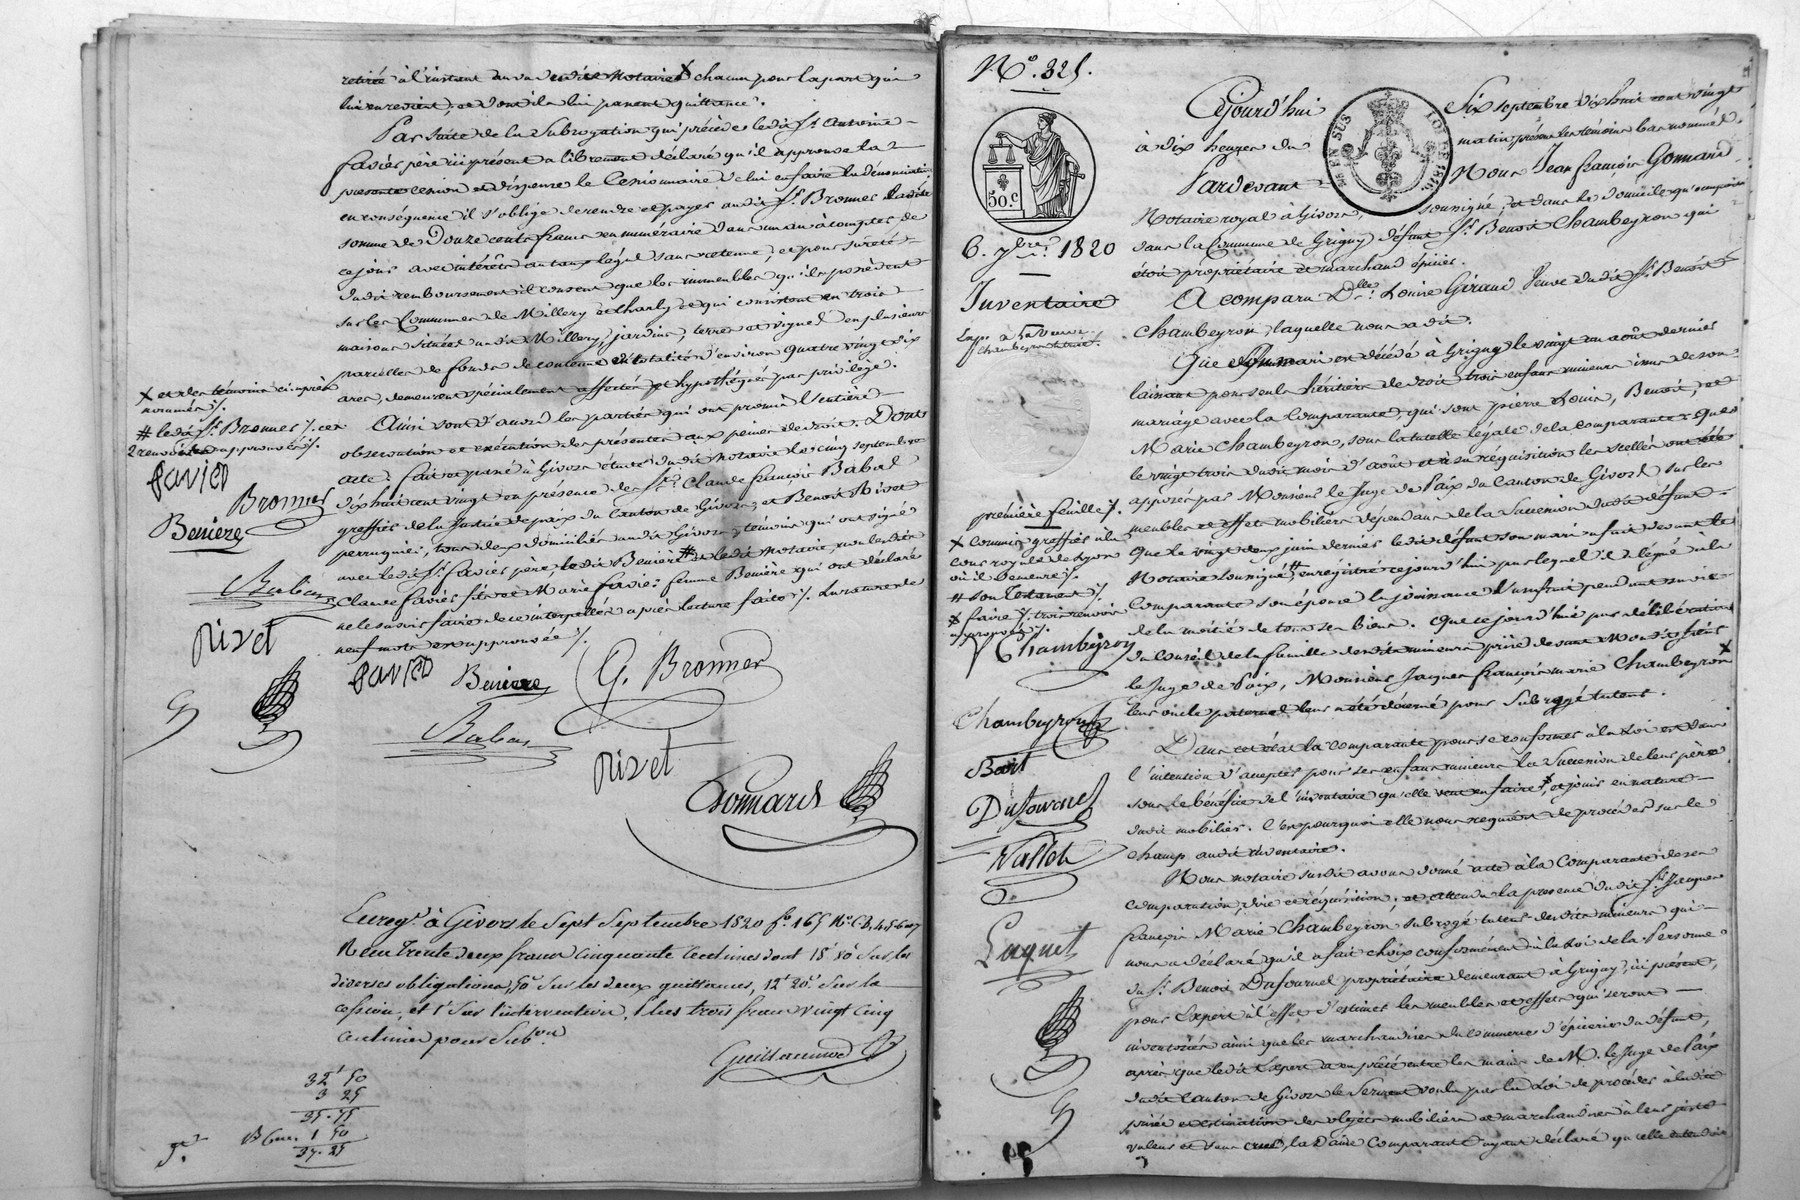 retirée à l'instant au vu dudit Notaire X chacun pour la part qui
lui en revient, et dont ils lui passent quittance.
Par suite de la Subrogation qui précède ledit Sr. Antoine
favier père ici présent a librement déclaré qu'il approuve la
présente cession et dispense le Cessionnaire de lui en faire la dénonciation
en conséquence il s'oblige de rendre et payer audit Sr. Bronner ladite
somme de Douze cents francs en numéraire dans un an à compter de
ce jour avec intérêts au taux légal sans retenue, et pour sureté
dudit remboursement il consent que les immeubles qu'il possède
sur les Communes de Millery et Charly et qui consistent en trois
maisons situées audit Millery, jardins, terres et vignes en plusieurs
parcelles de fonds de contenue en totalité d'environ quatre vingt dix
ares, demeurent spécialement affectés et hypothéqués par privilège.
Ainsi sont d'accord les parties qui ont promis l'entière
observation et exécution des présentes aux peines de droit. Dont
acte: fait et passé à Givors étude dudit Notaire le cinq septembre
dix huit cent vingt en présence de Srs. Claude françois Babad
greffier de la Justice de paix du Canton de Givors, et Benoit Rivet
perruquier, tous deux domiciliés audit Givors, témoins qui ont signé
avec ledit Sr. favier père, ledit Benière # et ledit Notaire, non lesdits
Claude favier fils et Marie favier femme Benière qui ont déclaré
ne le savoir faire de ce interpellés après lecture faite /. La rature de
neuf mots est approuvée /.
X et des témoins ci après
nommés /.
# ledit Sr. Bronner /. ces
2 renvois approuvés /.
favier
Bronner
Benière
Babad
Rivet
favier Benière G. Bronner
Babad
Rivet
Gonnard
Enregé. à Givors le Sept Septembre 1820 fo. 165
Reçu Trente deux francs Cinquante Centimes dont sur les
diverses obligations, 50c Sur les deux quittances, Sur la
cession, et 1f Sur l'intervention, plus trois francs vingt Cinq
centimes pour Subon
Guillaumod
32f 50
3 25
35.75
1 50
37.25
No. 325.
50.c
EN SUS
6. 7bre. 1820
Inventaire
Chambeyron
Aujourd'hui Six septembre dix huit cent vingt
à dix heures du matin présens les témoins bas nommés.
Pardevant Nous Jean françois Gonnard
Notaire royal à Givors, soussigné, et dans le domicile qu'occupoit
dans la Commune de Grigny défunt Sr. Benoit Chambeyron qui
étoit propriétaire et marchand épicier.
A comparu Dlle. Louise Giraud Veuve dudit Sr. Benoit
Chambeyron, laquelle nous a dit.
Que son mari est décédé à Grigny le vingt un août dernier
laissant pour seuls héritiers de droit trois enfans mineurs issus de son
mariage avec la Comparante, qui sont pierre Louis, Benoit, et
Marie Chambeyron, sous la tutelle légale de la comparante; que
le vingt trois dudit mois d'août et à sa réquisition les scellés ont été
apposés par Monsieur le Juge de Paix du Canton de Givors sur les
meubles et effets mobiliers dépendans de la Succession dudit défunt.
Que le vingt deux juin dernier ledit défunt son mari en fait devant le
Notaire soussigné # enregistré cejourd'hui par lequel il a légué à la
Comparante son épouse la jouissance d'usufruit pendant sa vie
de la moitié de tous ses biens. Que cejourd'hui par délibération
du Conseil de la famille desdits mineurs prise devant Mondit Sieur
le Juge de Paix, Monsieur Jacques françois marie Chambeyron X
leur oncle paternel leur a été décerné pour Subrogé tuteur.
Dans cet état la comparante pour se conformer à la Loi et dans
l'intention d'accepter pour ses enfans mineurs la Succession de leur père
sous le bénéfice de l'inventaire qu'elle veut en faire X, et jouir en nature
dudit mobilier. C'est pourquoi elle nous requiert de procéder sur le
champ audit inventaire.
Nous notaire susdit avons donné acte à la Comparante de sa
comparution, dire et réquisition; et attendu la présence dudit Sr. Jacques
françois Marie Chambeyron subrogé tuteur desdits mineurs qui
nous a déclaré qu'il a fait choix conformément à la Loi de la Personne
du Sr. Benoit Dufournel propriétaire demeurant à Grigny, ici présent,
pour Expert à l'effet d'estimer les meubles et effets qui seront
inventoriés ainsi que les marchandises du commerce d'épicerie du défunt,
après que ledit Expert a eu prêté entre les mains de M. le Juge de Paix
dudit Canton de Givors le Serment voulu par la Loi de procéder à ladite
prisée et estimation des objets mobiliers et marchandises à leur juste
valeur et sans crue, la Dame Comparante ayant déclaré qu'elle entendoit
première feuille /.
X Commis greffier à la
Cour royale de Lyon
où il demeure /.
# son Testament /.
X faire /. trois renvois
approuvés /.
V. Chambeyron
Chambeyron
Dufournel
Vallet
Luquet